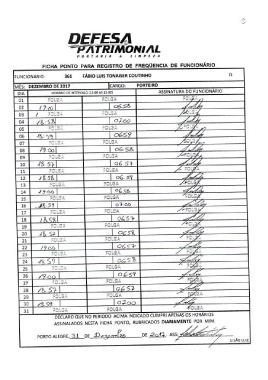 DEFESA
PATRIMONIAL
PORTARIA & LIMPEZA
FICHA PONTO PARA REGISTRO DE FREQÜENCIA DE FUNCIONÁRIO
FUNCIONÁRIO: 361 FÁBIO LUIS TONAISER COUTINHO
MÊS: DEZEMBRO DE 2017 CARGO: PORTEIRO
DIA HORÁRIO DE INTERVALO ASSINATURA DO FUNCIONÁRIO
01 FOLGA FOLGA
02 1900 0658
03 FOLGA FOLGA
04 1858 0700
05 FOLGA FOLGA
06 1859 0659
07 FOLGA FOLGA
08 1900 0658
09 FOLGA FOLGA
10 1857 0657
11 FOLGA FOLGA
12 1858 0659
13 FOLGA FOLGA
14 1900 0658
15 FOLGA FOLGA
16 1859 0700
17 FOLGA FOLGA
18 1858 0657
19 FOLGA FOLGA
20 1857 0658
21 FOLGA FOLGA
22 1900 0657
23 FOLGA FOLGA
24 1859 0658
25 FOLGA FOLGA
26 1900 0659
27 FOLGA FOLGA
28 1857 0658
29 FOLGA FOLGA
30 1859 0700
31 FOLGA FOLGA
DECLARO QUE NO PERÍODO ACIMA INDICADO CUMPRI APENAS OS HORÁRIOS
ASSINALADOS NESTA FICHA PONTO, RUBRICADOS DIARIAMENTE POR MIM.
PORTO ALEGRE, 31 DE Dezembro DE 2017